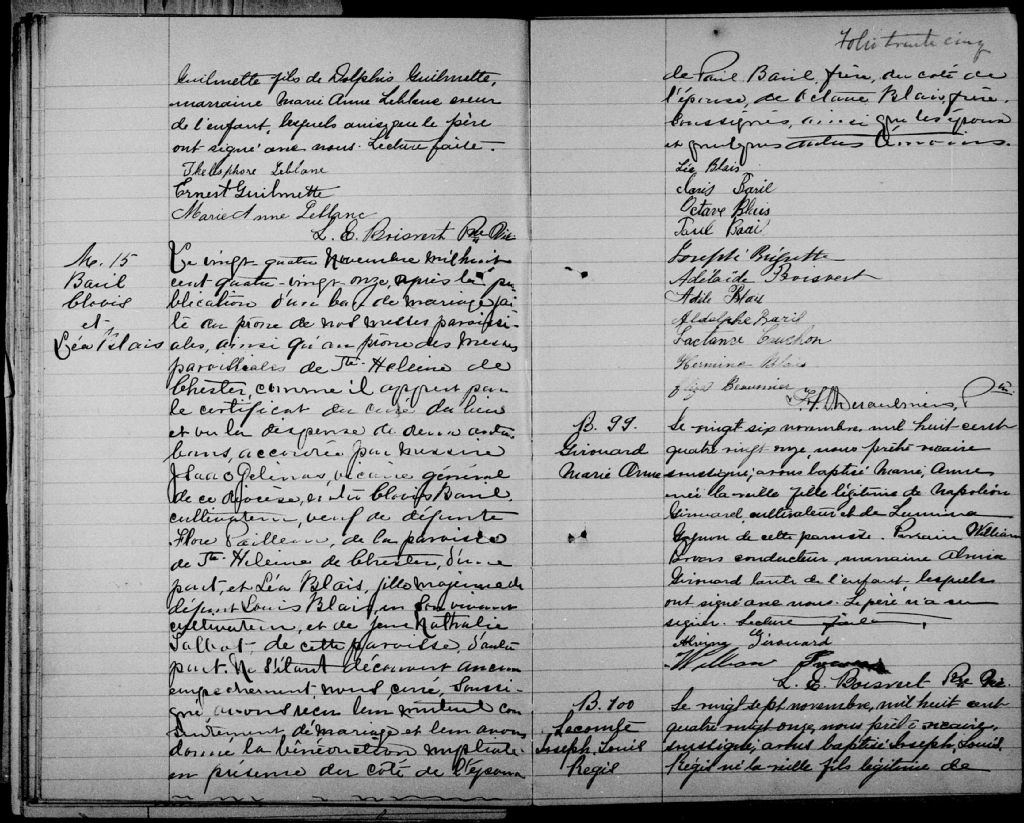 Guilmette fils de Dolphis Guilmette,
marraine Marie Anne Leblanc soeur
de l'enfant, lesquels ainsi que le père
ont signé avec nous. Lecture faite.
Thelesphore Leblanc
Ernest Guilmette
Marie Anne Leblanc
L. E. Boisvert Ptre Vic
M. 15
Baril
Clovis
et
Léa Blais
Le vingt quatre Novembre mil huit
cent quatre-vingt onze, après la pu
blication d'un ban de mariage fai
te au prône de nos messes paroissi
ales, ainsi qu'au prône des messes
paroissiales de Ste Heleine de
Chester, comme il appert par
le certificat du curé du lieu
et vu la dispense de deux autres
bans, accordée par Messire
Isaac Gelinas, vicaire général
de ce diocèse, entre Clovis Baril
cultivateur, veuf de défunte
Flore Pailleur, de la paroisse
de Ste Heleine de Chester, d'une
part, et Léa Blais, fille majeure de
défunt Louis Blais, en son vivant
cultivateur, et de feue Nathalie
Talbot de cette paroisse, d'autre
part. Ne s'étant découvert aucun
empêchement, nous, curé, sousi-
gné, avons reçu leur mutuel con
sentement de mariage et leur avons
donné la bénédiction nuptiale
en présence du côté de l'époux
Folio trente cinq
de Paul Baril, frère, du coté de
l'épouse, de Octave Blais, frère,
soussignés, ainsi que les époux
et quelques autres témoins.
Léa Blais
Clovis Baril
Octave Blais
Paul Baril
Joseph Frégette
Adélaïde Boisvert
Adèle Blais
Aldolphe Baril
Lactance Cauchon
Hermine Blais
Beaumier
H. Desaulniers, Ptre
B. 99.
Girouard
Marie Anne
Le vingt six novembre, mil huit cent
quatre vingt onze, nous prêtre vicaire
soussigné, avons baptisé Marie, Anne
née la veille fille légitime de Napoléon
Girouard, cultivateur et de Lumina
Gagnon de cette paroisse. Parrain William
conducteur, marraine Alvina
Girouard tante de l'enfant, lesquels
ont signé avec nous. Le père n'a su
signer. Lecture faite.
Alvina Girouard
William
L. E. Boisvert Ptre Vic.
B. 100
Lecomte
Joseph, Louis
Regis
Le vingt sept novembre, mil huit cent
quatre vingt onze, nous prêtre vicaire,
soussigné, avons baptisé Joseph, Louis,
Régis né la veille fils légitime de